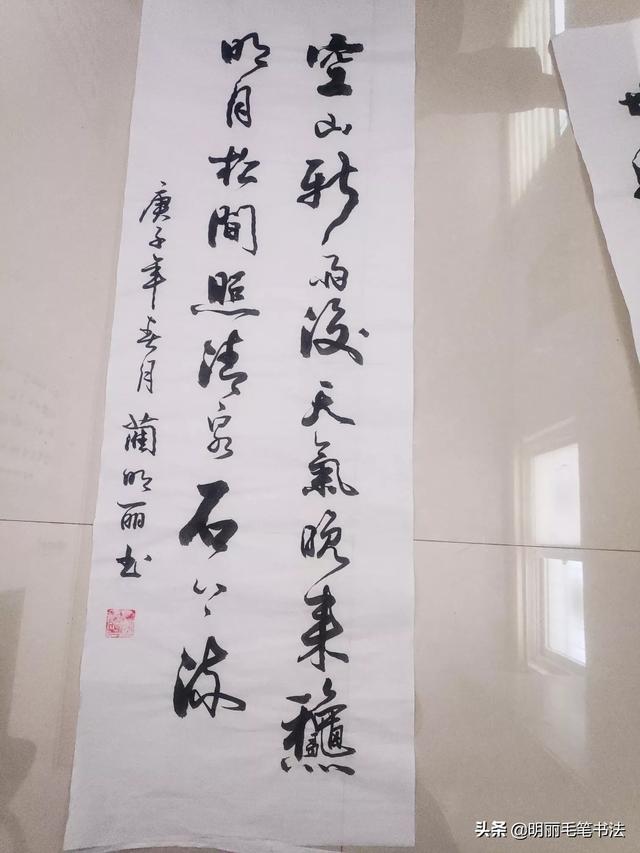 空山新雨後天氣晚来龝
明月松間照清泉石上流
庚子年春月 蘭明丽书
头条 @明丽毛笔书法